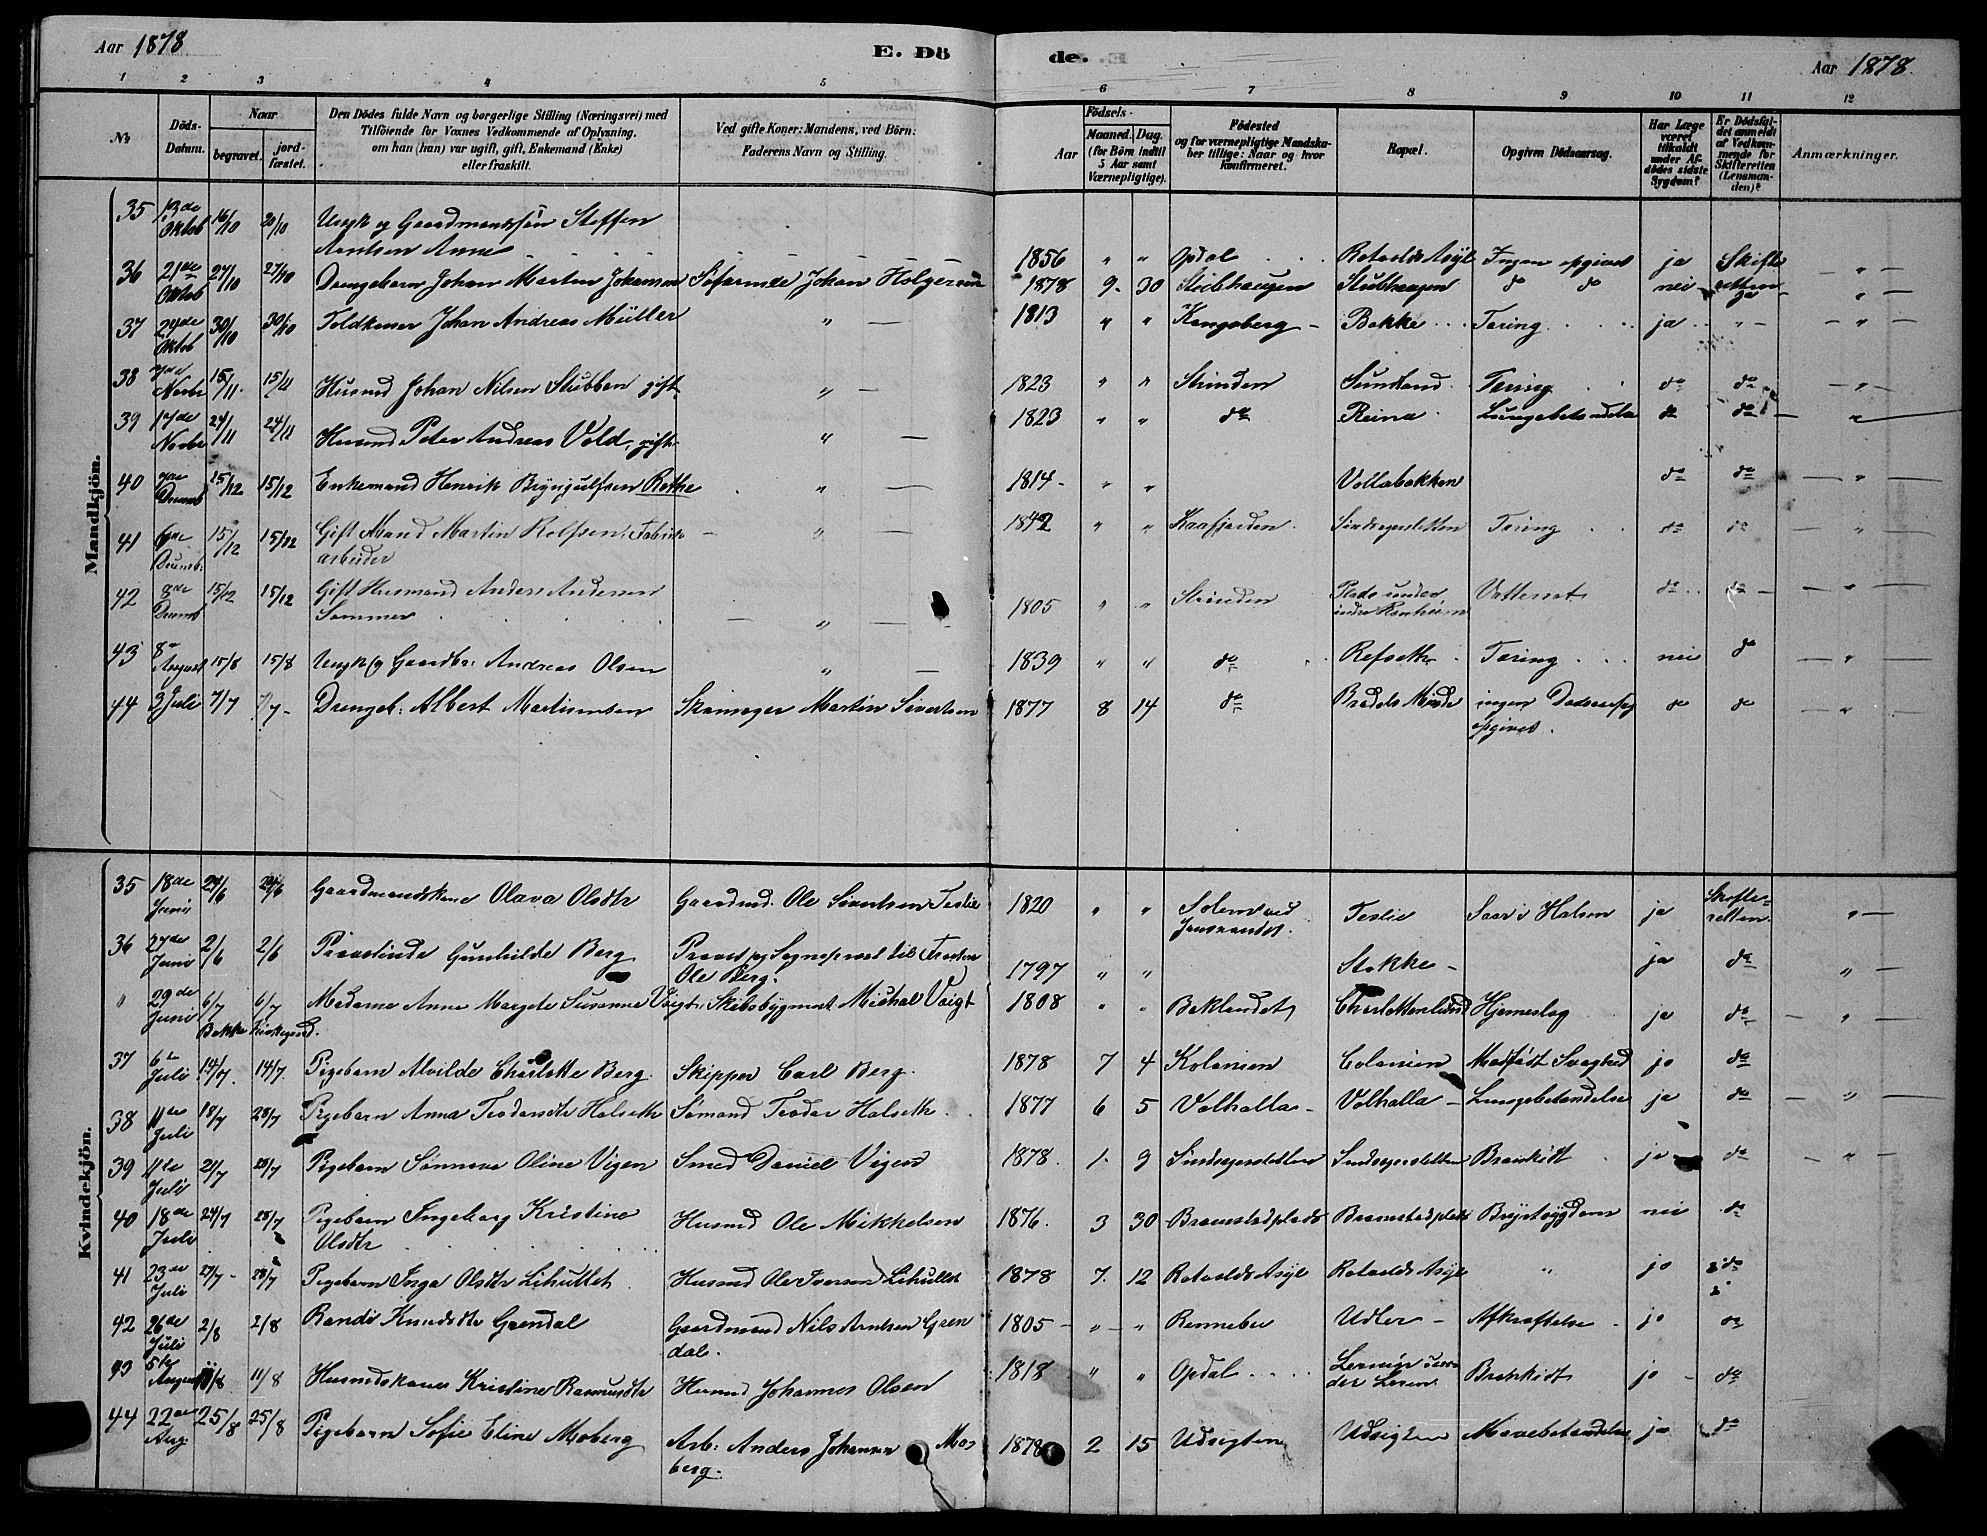 Aar 1878
E. Dö
de.
Aar 1878.
1 2 3 4 5 6 7 8 9 10 11 12
№
Döds-Datum.
Naar
begravet.
jord-fæstet.
Den Dödes fulde Navn og borgerlige Stilling (Næringsvei) med
Tilföiende for Voxnes Vedkommende af Oplysning,
om han (hun) var ugift, gift, Enkemand (Enke)
eller fraskilt.
Ved gifte Koner: Mandens, ved Börn:
Faderens Navn og Stilling.
Födsels-
Aar
Maaned. Dag.
(for Börn indtil
5 Aar samt
Værnepligtige).
Födested
og for værnepligtige Mandska-
ber tillige: Naar og hvor
konfirmeret.
Bopæl.
Opgiven Dödsaarsag.
Har Læge
været
tilkaldt
under Af-
dödes sidste
Sygdom?
Er Dödsfal-
det anmeldt
af Vedkom-
mende for
Skifteretten
(Lensman-
den)?
Anmærkninger.
Mandkjön.
35 13de Oktob 16/10 20/10 Ungk og Gaardmandssøn Steffen
Arntsen Aune 1856 " " Opdal Rotvolds Asyl Ingen opgivet ja Skifte
retten
36 21de Oktob 27/10 27/10 Drengebarn Johan Martin Johansen Søfarende Johan Holgersen 1878 9 30 Stubhaugen Stubhaugen do do nei ja "
37 24de Oktob 30/10 30/10 Toldkasser Johan Andreas Müller " 1813 " " Kongsberg Bakke Tæring ja " "
38 7de Novbr 15/11 15/11 Husmd Johan Nilsen Stubban gift " 1823 " " Strinden Sundland Tæring do do "
39 17de Novbr 24/11 24/11 Husmd Peter Andreas Vold, gift " 1823 " " do Reina Lungebetændelse do do "
40 7de Decemb 15/12 15/12 Enkemand Henrik Brynjulfsen Rothe " 1814 " " Vollabakken do do "
41 6de Decemb. 15/12 15/12 Gift Mand Martin Rolfsen, Fabrik-
arbeider " 1842 " " Kaafjorden Sindsygeasletten Tæring do do "
42 8de Decemb 15/12 15/12 Gift Husmand Anders Andersen
Sommer " 1805 " " Strinden Plads under
indre Ranheim Vattersot do do "
43 8de August 15/8 15/8 Ungk og Gaardbr: Andreas Olsen " 1839 " " do Refseth Tæring nei do "
44 3 Juli 7/7 7/7 Drengeb: Albert Martinsen Skomager Martin Sivertsen 1877 8 14 do Brødels Minde ingen Dødsaarsag
opgivet. do do "
Kvindekjön.
35 18de Juni 24/6 24/6 Gaardmandskone Olava Olsdtr Gaardmd. Ole Sivertsen Teslie 1820 " " Solem ved
Jonsvandet. Teslie Saar i Halsen ja Skifte-
retten. "
36 27de Juni 2/6 2/6 Provstinde Gunhilde Berg Provst og Sogneprest til Frosten
Ole Berg. 1797 " " Stokke ja do "
" 29de Juni 6/7 6/7 Madame Anne Margrete Susanne Voigt Skibsbygmest. Michal Voigt 1808 " " Baklandet Charlottenlund Hjerneslag ja do "
Bakke Kirkegaard.
37 6te Juli 14/7. 14/7. Pigebarn Alvilde Charlotte Berg. Skipper Carl Berg. 1878 7 4 Kolonien Colonien Medfødt Svaghed ja do
38 11de Juli 18/7 28/7 Pigebarn Anna Teodorsdtr Halseth Sømand Teodor Halseth 1877 6 5 Valhalla Valhalla Lungebetændelse ja do "
39 11te Juli 21/7 28/7 Pigebarn Sønneva Oline Vigen Smed Daniel Vigen 1878. 1. 9 Sindsygeasletten Sindsygeasletten Bronkidt ja do "
40 18de Juli 24/7 28/7 Pigebarn Ingeborg Kristine
Olsdtr Husmd Ole Mikkelsen 1876. 3 30 Bromstadplads Bromstadplads Brystsygdom nei do
41 23de Juli 27/7 28/7 Pigebarn Inga Olsdtr Lihullet. Husmd Ole Iverson Lihullet 1878 7. 12 Rotvolds Asyl Rotvolds Asyl " ja do
42 26de Juli 2/8 2/8 Randi Knudsdtr Grendal Gaardmand Nils Arntsen Gren
dal. 1805 " " Rennebu Udler Afkræftelse ja do
43 5te August 11/8 11/8 Husmdskone Kristine Rasmusdtr Husmd Johannes Olsen 1818 " " Opdal Lerviin un-
der Leren Bronkidt ja do
44 22de Aug. 25/8 25/8 Pigebarn Sofie Eline Moberg Arb: Anders Johansen Mo-
berg. 1878 2 15 Udsigten Udsigten Mavebetændelse ja do